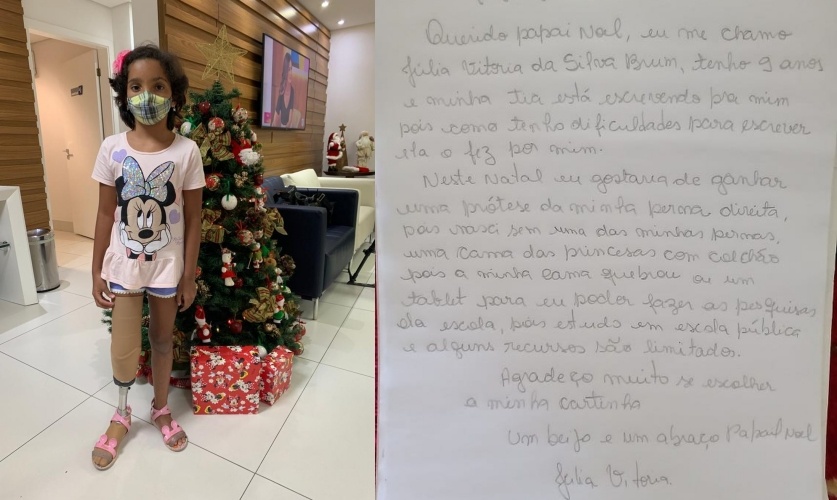 Querido papai Noel, eu me chamo
Júlia Vitoria da Silva Brum, tenho 9 anos
e minha tia está escrevendo pra mim
pois como tenho dificuldades para escrever
ela o fez por mim.
Neste Natal eu gostaria de ganhar
uma prótese da minha perna direita,
pois nasci sem uma das minhas pernas,
uma cama das princesas com colchão
pois a minha cama quebrou ou um
tablet para eu poder fazer as pesquisas
da escola, pois estudo em escola pública
e alguns recursos são limitados.
Agradeço muito se escolher
a minha cartinha
Um beijo e um abraço Papai Noel
Júlia Vitoria